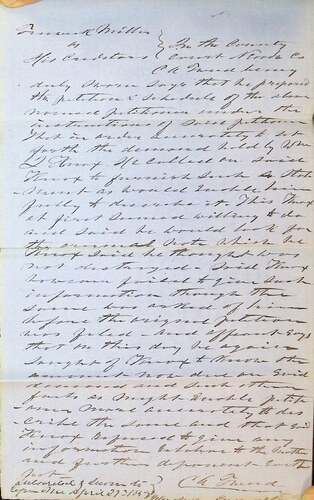 Frederick Miller } In the County
vs } Court
His Creditors } C A Freund being
duly sworn says that he prepared
the petition & schedule of the above
named petitioner under the
instructions of said petitioner
That in order accurately to set
forth the demand held by Wm
Knox he called on said
Knox to furnish such a state
ment as would enable him
fully to describe it This Knox
at first seemed willing to do
and said he would look for
the original note which he
Knox said he thought was
not destroyed Said Knox
however failed to give such
information though the
same was asked of him
before the original petition
was filed and affiant says
that on this day he again
sought of Knox to know the
amount now due on said
demand and such other
facts as might enable petit
ioner more accurately to des
cribe the same and that said
Knox refused to give any
information relative to the matter
and further deponent saith
not
Subscribed & sworn to
before me April 27th